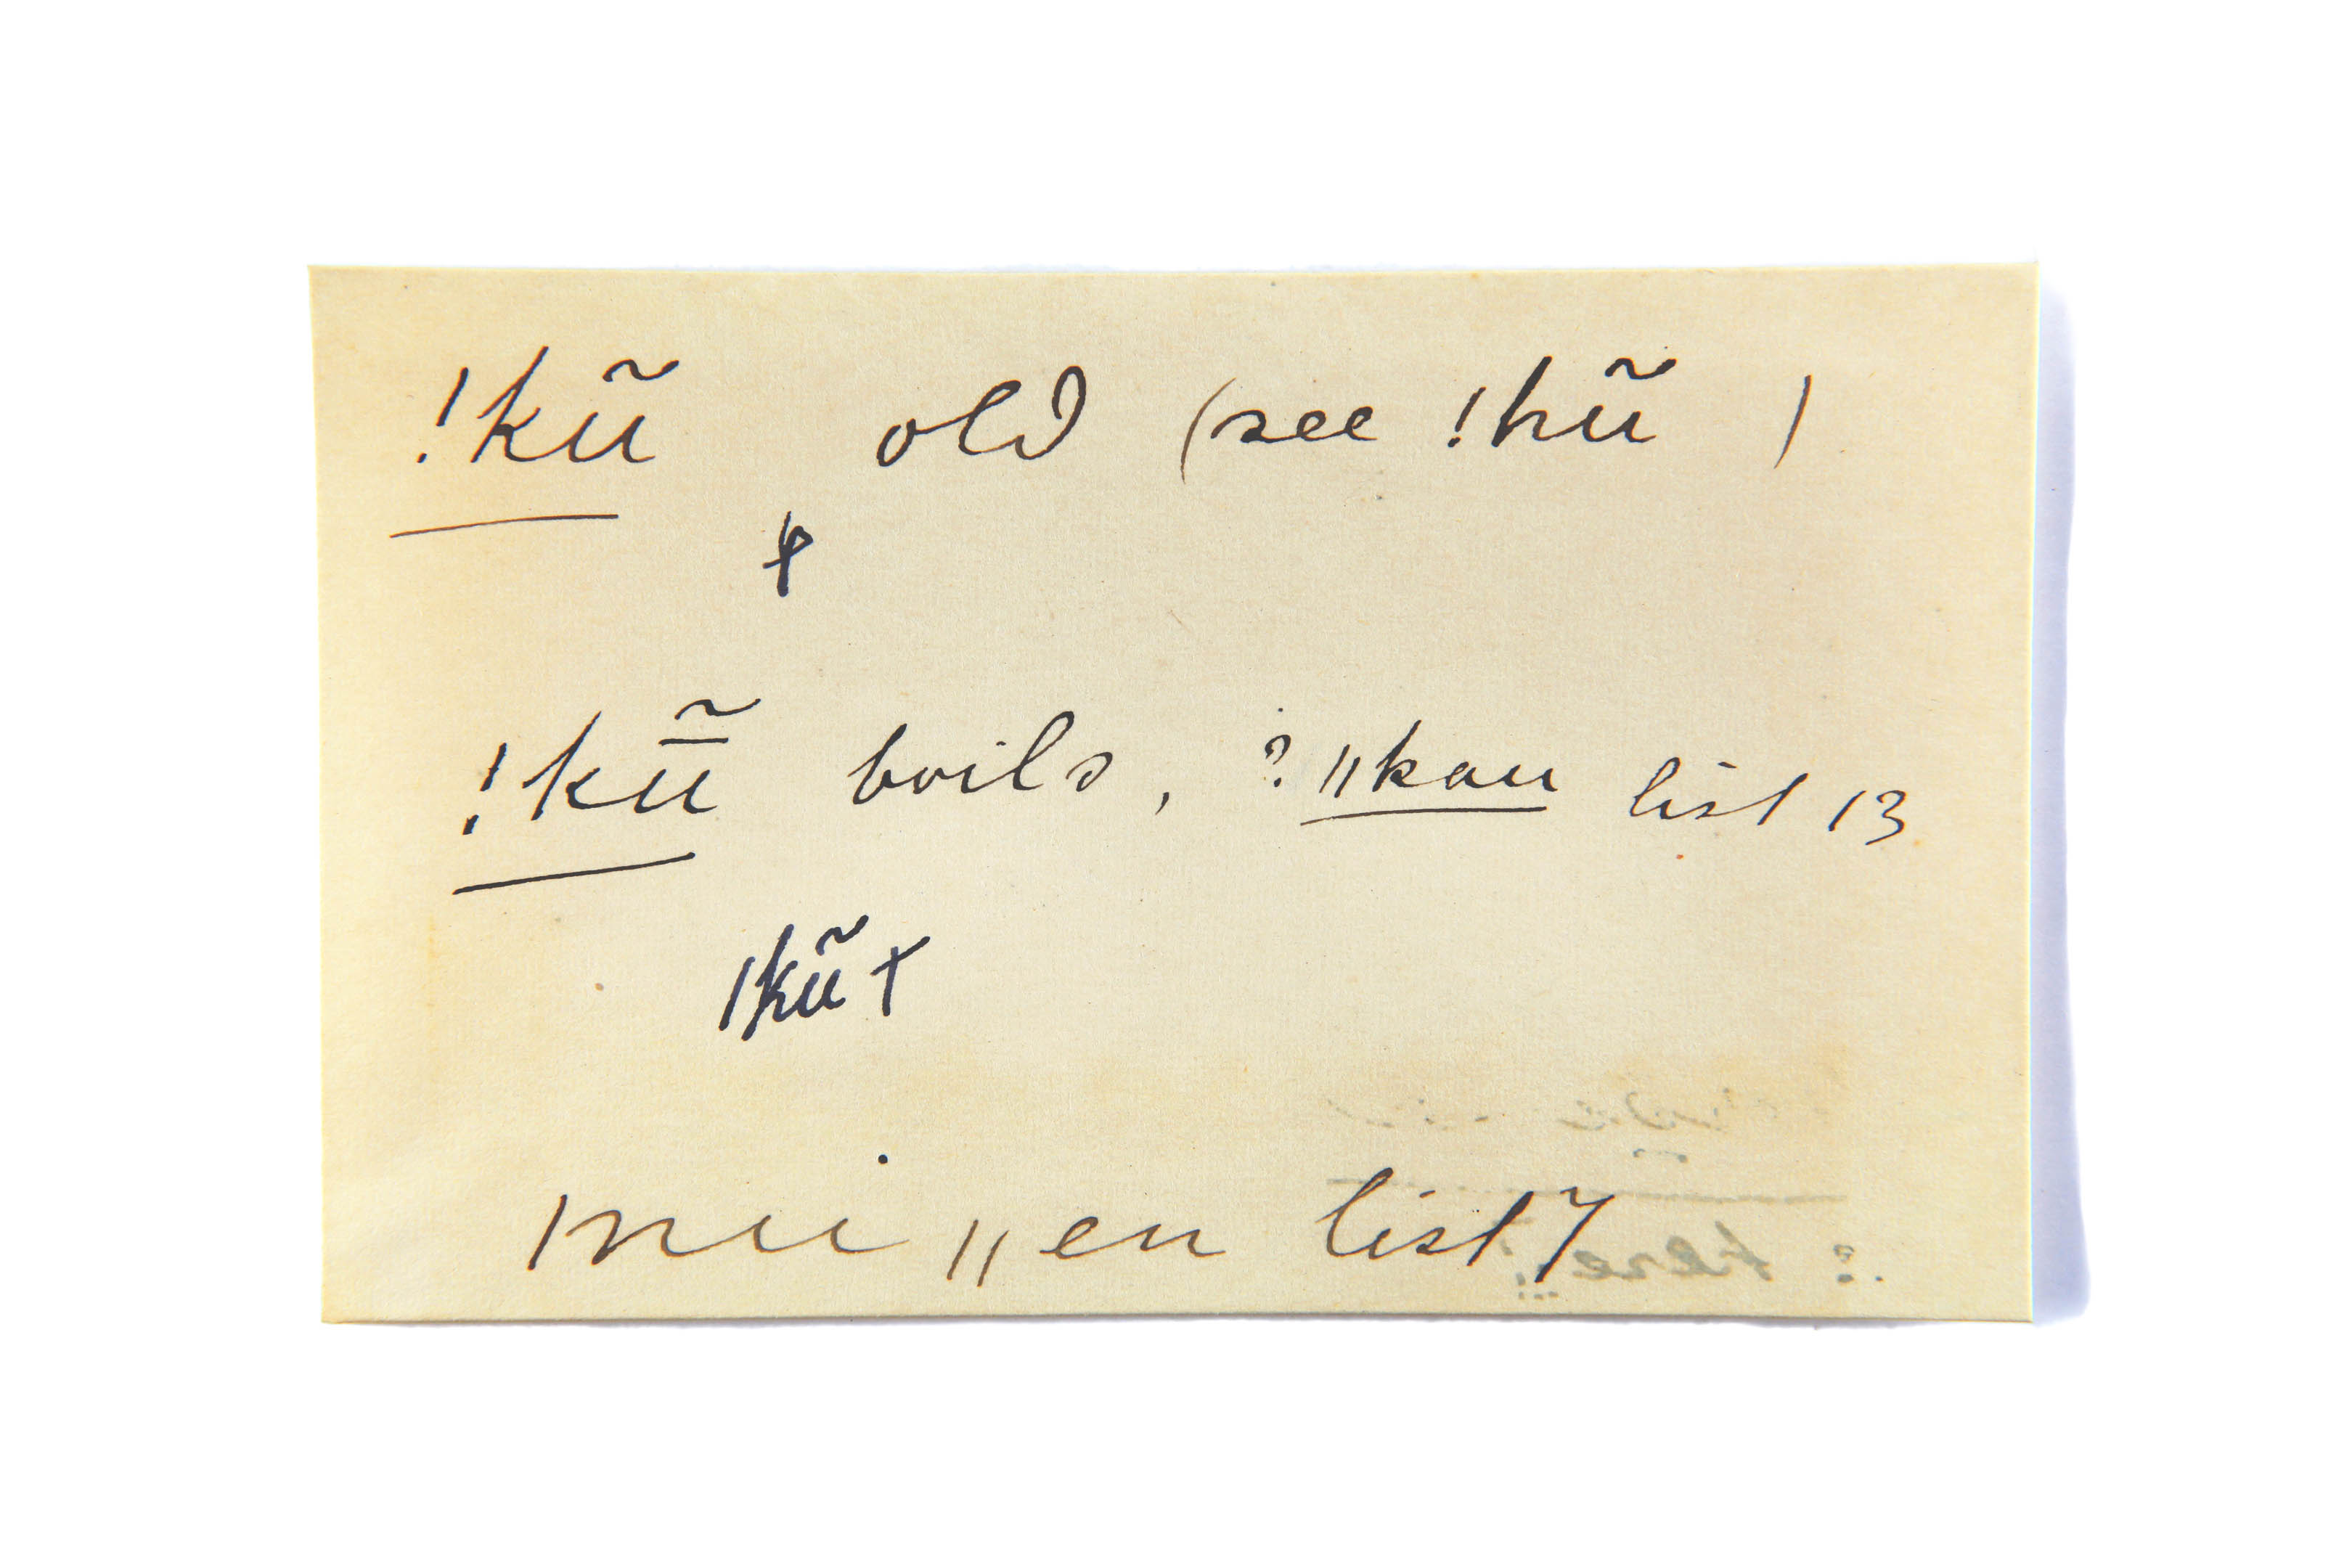 !kũ old (see !hũ )
!kũ̄ boils, ? ǁkau list 13
ǀkũ +
ǀnui ǁen list 7